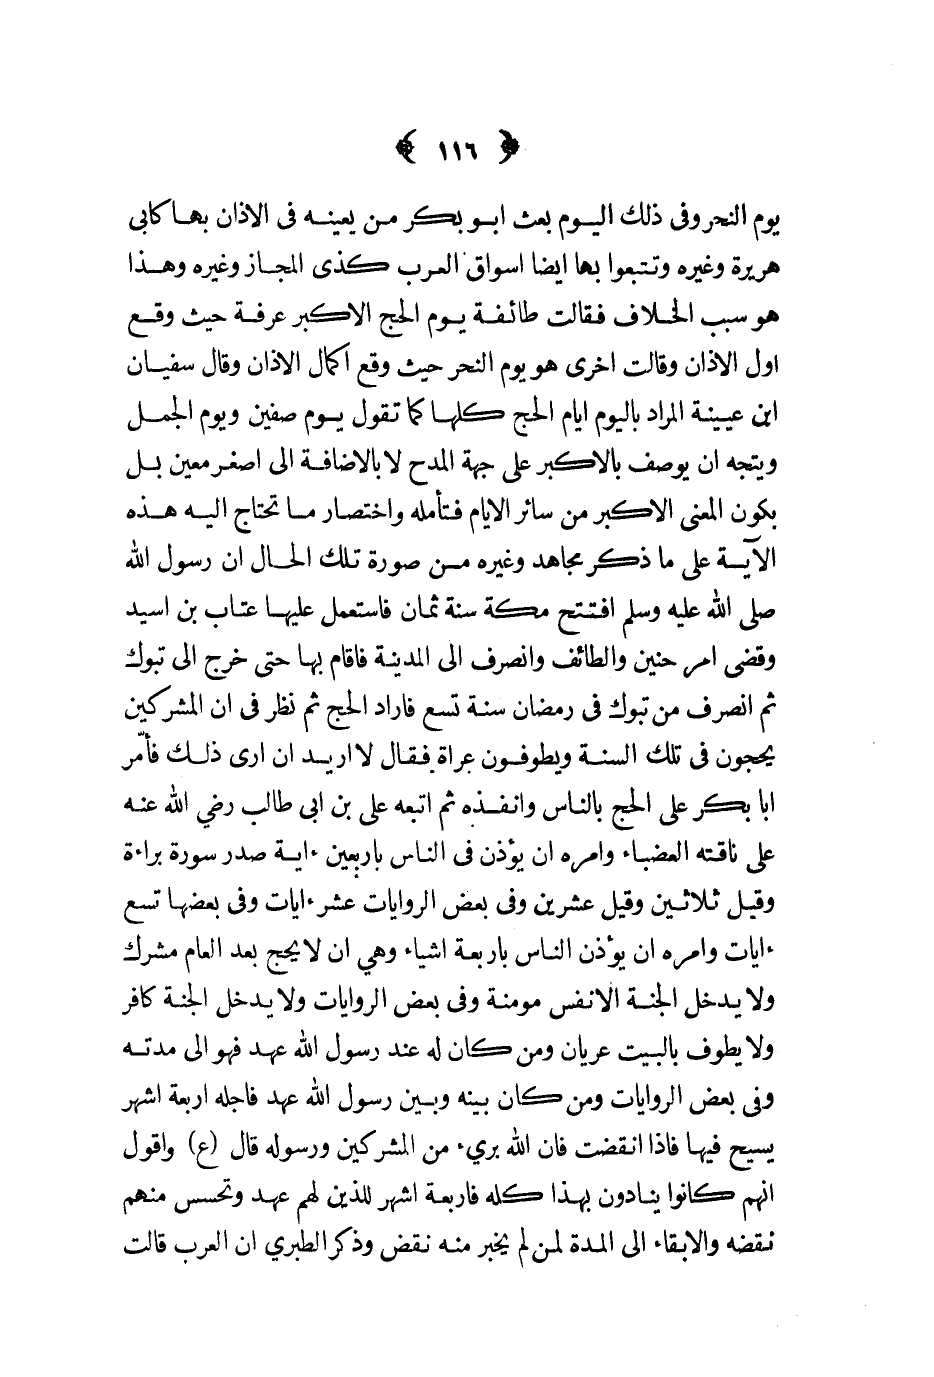 ﴿ ١١٦ ﴾
يوم النحر وفى ذلك اليوم بعث ابو بكر من يعينه فى الاذان بها كابى
هريرة وغيره وتتبعوا بها ايضا اسواق العرب كذى المجاز وغيره وهذا
هو سبب الخلاف فقالت طائفة يوم الحج الاكبر عرفة حيث وقع
اول الاذان وقالت اخرى هو يوم النحر حيث وقع اكمال الاذان وقال سفيان
ابن عيينة المراد باليوم ايام الحج كلها كما تقول يوم صفين ويوم الجمل
ويتجه ان يوصف بالاكبر على جهة المدح لا بالاضافة الى اصغر معين بل
يكون المعنى الاكبر من سائر الايام فتأمله واختصار ما تحتاج اليه هذه
الآية على ما ذكر مجاهد وغيره من صورة تلك الحال ان رسول الله
صلى الله عليه وسلم افتتح مكة سنة ثمان فاستعمل عليها عتاب بن اسيد
وقضى امر حنين والطائف وانصرف الى المدينة فاقام بها حتى خرج الى تبوك
ثم انصرف من تبوك فى رمضان سنة تسع فاراد الحج ثم نظر فى ان المشركين
يحجون فى تلك السنة ويطوفون عراة فقال لا اريد ان ارى ذلك فأمّر
ابا بكر على الحج بالناس وانفذه ثم اتبعه على بن ابى طالب رضي الله عنه
على ناقته العضباء وامره ان يؤذن فى الناس باربعين ءاية صدر سورة براءة
وقيل ثلاثين وقيل عشرين وفى بعض الروايات عشر ءايات وفى بعضها تسع
ءايات وامره ان يؤذن الناس باربعة اشياء وهي ان لا يحج بعد العام مشرك
ولا يدخل الجنة الا نفس مومنة وفى بعض الروايات ولا يدخل الجنة كافر
ولا يطوف بالبيت عريان ومن كان له عند رسول الله عهد فهو الى مدته
وفى بعض الروايات ومن كان بينه وبين رسول الله عهد فاجله اربعة اشهر
يسيح فيها فاذا انقضت فان الله بريء من المشركين ورسوله قال (ع) واقول
انهم كانوا ينادون بهذا كله فاربعة اشهر للذين لهم عهد وتحسس منهم
نقضه والابقاء الى المدة لمن لم يخبر منه نقض وذكر الطبري ان العرب قالت